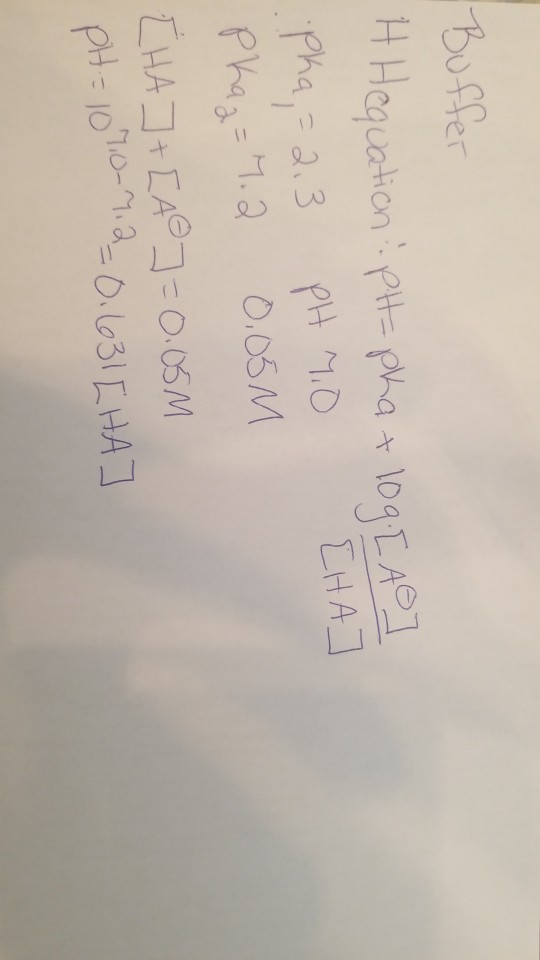 Buffer
HH equation: pH = pka + log [A⊖]
[HA]
pka₁ = 2.3 pH 7.0
pka₂ = 7.2 0.05M
[HA] + [A⊖] = 0.05M
pH = 10^7.0-7.2 = 0.631 [HA]